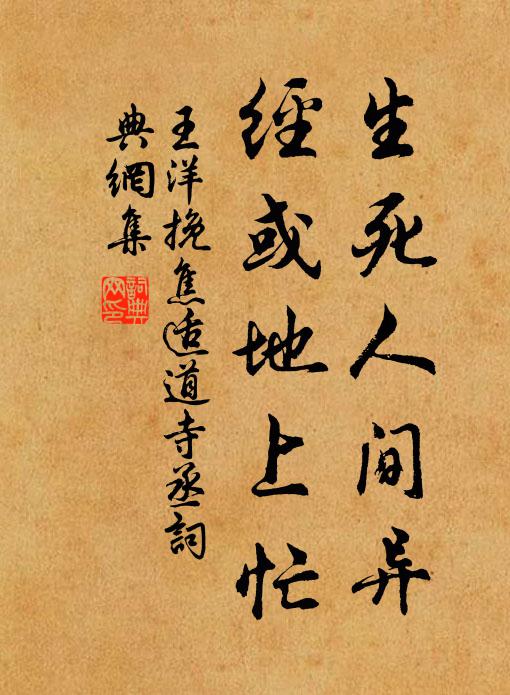 生死人间异
經或地上忙
王洋挽焦适道寺丞詞
典網集
詞典
网印